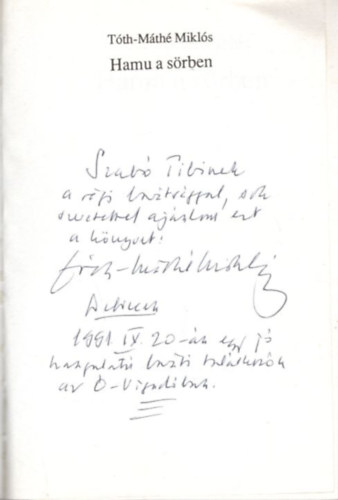 Tóth-Máthé Miklós
Hamu a sörben
Szabó Tibinek
a régi barátsággal, sok
szeretettel ajánlom ezt
a könyvet:
Tóth-Máthé Miklós
Debrecen
1991 IX. 20-án egy jó
hangulatú baráti találkozón
az Ó-Vigadóban.